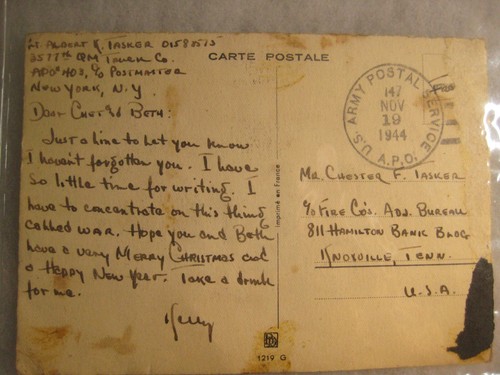 Lt. Albert K. Tasker 01583575
3577th QM Truck Co.
APO 403, c/o Postmaster
New York, N.Y.
CARTE POSTALE
U.S. ARMY POSTAL SERVICE
147
NOV
19
1944
A.P.O.
Dear Chet and Beth:
Just a line to let you know
I havent forgotten you. I have
so little time for writing. I
have to concentrate on this thing
called war. Hope you and Beth
have a very Merry Christmas and
a Happy New Year. Take a drink
for me.
Kelly
imprimé en France
Mr. Chester F. Tasker
c/o Fire Co's. Adj. Bureau
811 Hamilton Bank Bldg
Knoxville, Tenn.
U.S.A.
1219 G